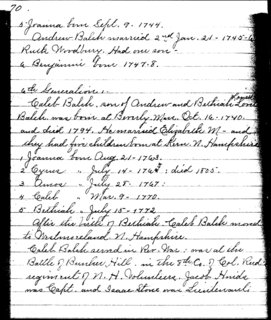 70.
5 Joanna born Sept. 9 - 1744.
Andrew Balch married 2nd Jan. 21 - 1745-6
Ruth Woodbury. Had one son -
6 Benjamin born 1747-8.
6th Generation:
Caleb Balch, son of Andrew and Bethiah
Balch was born at Beverly, Mass. Oct. 16 - 1740.
and died 1794. He married Elizabeth M - and
they had five children born at Keene N. Hampshire
1 Joanna born Aug. 21 - 1763.
2 Cyrus " July - 14 - 1765; died 1805.
3 Amos " July 28 - 1767:
4 Caleb " Mar. 9 - 1770.
5 Bethiah " July 15 - 1772
After the birth of Bethiah - Caleb Balch moved
to Westmoreland N. Hampshire.
Caleb Balch served in Rev. War; was at the
Battle of Bunker Hill. in the 8th Co. of Col. Reid
regiment of N. H. Volunteers. Jacob Hinds
was Capt. and Isaac Stone was Lieutenant.